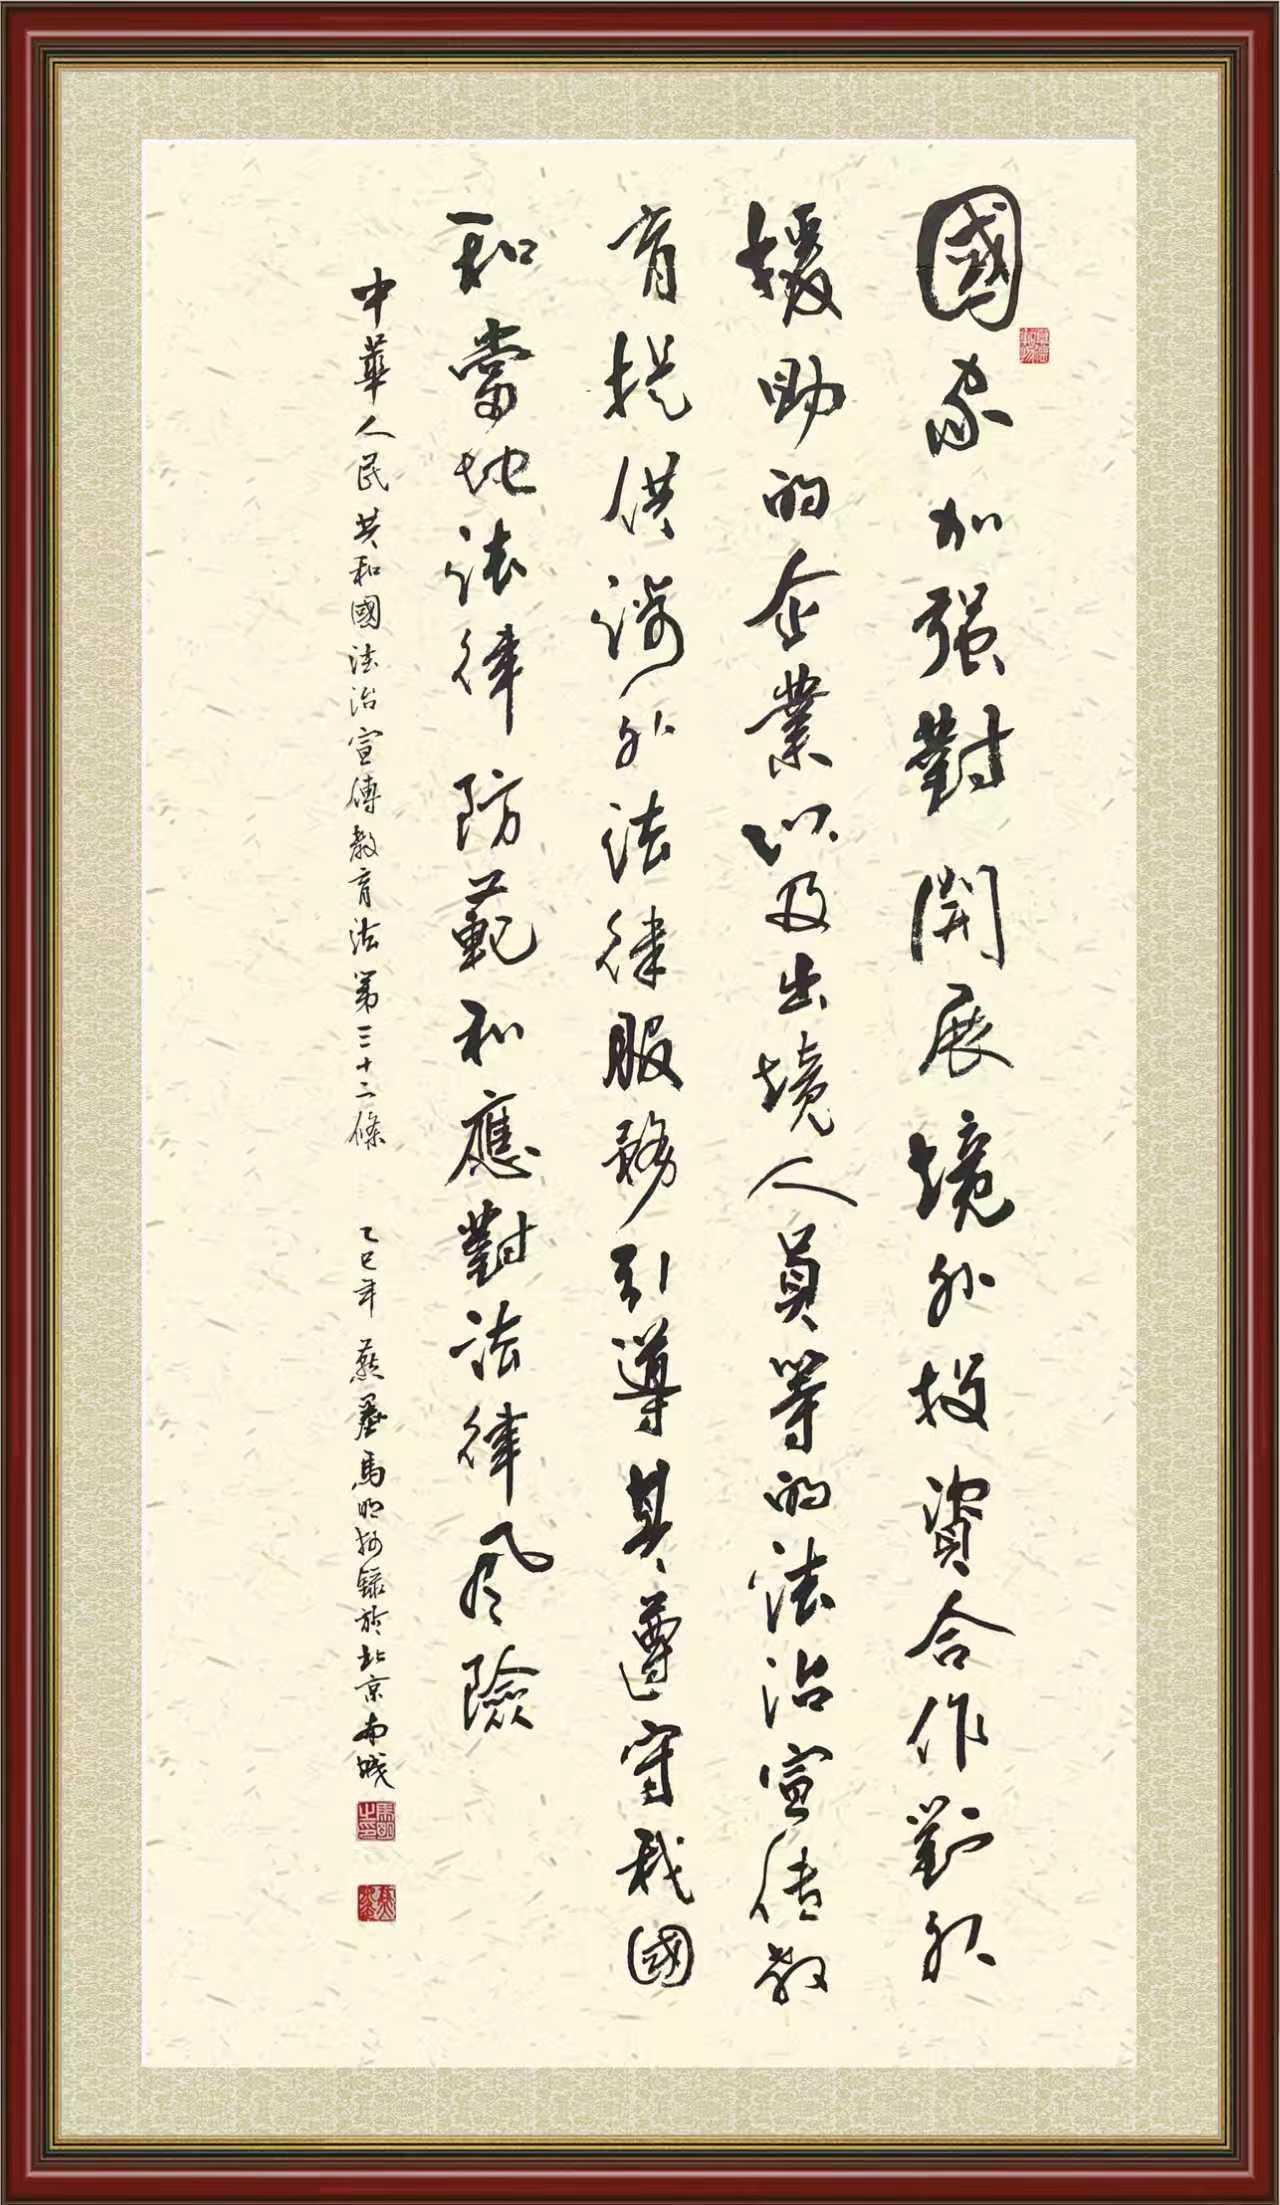 國家加强對開展境外投資合作對外
援助的企業以及出境人員等的法治宣傳教
育提供涉外法律服務引導其遵守我國
和當地法律防範和應對法律風險
中華人民共和國法治宣傳教育法第三十二條 乙巳年 燕墨馬明抄錄於北京南城
馬明之印